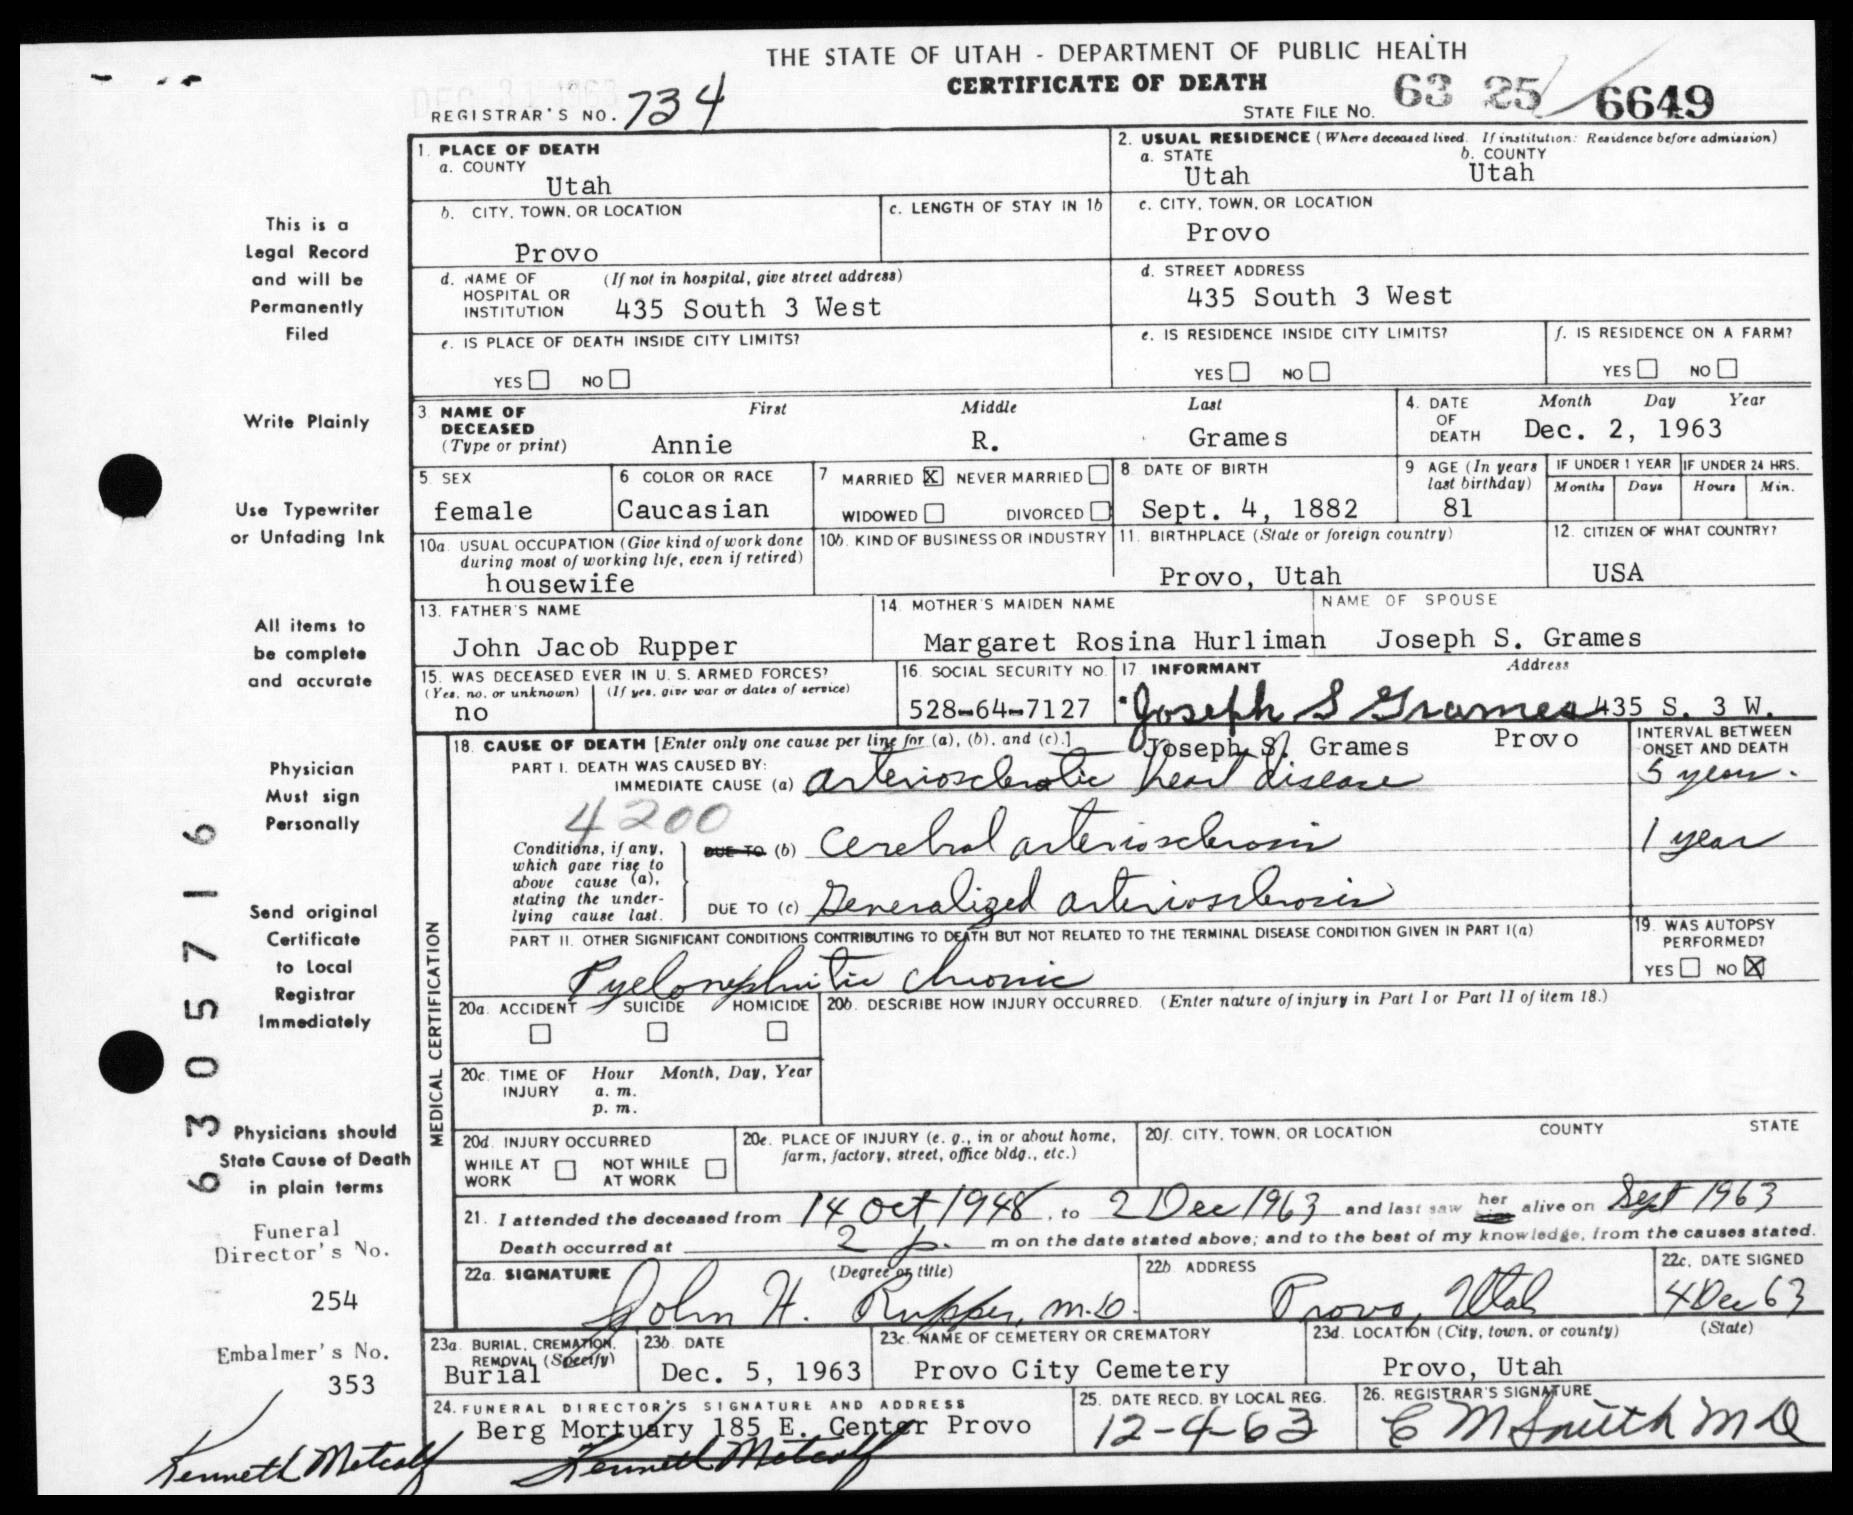 THE STATE OF UTAH - DEPARTMENT OF PUBLIC HEALTH
CERTIFICATE OF DEATH
REGISTRAR'S NO. 734
STATE FILE NO. 63 25 6649
1. PLACE OF DEATH
a. COUNTY
Utah
2. USUAL RESIDENCE (Where deceased lived. If institution: Residence before admission)
a. STATE b. COUNTY
Utah Utah
b. CITY, TOWN, OR LOCATION
Provo
c. LENGTH OF STAY IN 1b
c. CITY, TOWN, OR LOCATION
Provo
d. NAME OF HOSPITAL OR INSTITUTION (If not in hospital, give street address)
435 South 3 West
d. STREET ADDRESS
435 South 3 West
e. IS PLACE OF DEATH INSIDE CITY LIMITS?
YES NO
e. IS RESIDENCE INSIDE CITY LIMITS?
YES NO
f. IS RESIDENCE ON A FARM?
YES NO
3. NAME OF DECEASED (Type or print)
First Middle Last
Annie R. Grames
4. DATE OF DEATH
Month Day Year
Dec. 2, 1963
5. SEX
female
6 COLOR OR RACE
Caucasian
7 MARRIED X NEVER MARRIED
WIDOWED DIVORCED
8 DATE OF BIRTH
Sept. 4, 1882
9 AGE (In years last birthday)
81
IF UNDER 1 YEAR
Months Days
IF UNDER 24 HRS.
Hours Min.
10a. USUAL OCCUPATION (Give kind of work done
during most of working life, even if retired)
housewife
10b. KIND OF BUSINESS OR INDUSTRY
11. BIRTHPLACE (State or foreign country)
Provo, Utah
12. CITIZEN OF WHAT COUNTRY?
USA
13. FATHER'S NAME
John Jacob Rupper
14. MOTHER'S MAIDEN NAME
Margaret Rosina Hurliman
NAME OF SPOUSE
Joseph S. Grames
15. WAS DECEASED EVER IN U. S. ARMED FORCES?
(Yes, no, or unknown) (If yes, give war or dates of service)
no
16. SOCIAL SECURITY NO.
528-64-7127
17. INFORMANT Address
Joseph S Grames 435 S. 3 W.
Joseph S. Grames Provo
MEDICAL CERTIFICATION
18. CAUSE OF DEATH [Enter only one cause per line for (a), (b), and (c).]
INTERVAL BETWEEN
ONSET AND DEATH
PART I. DEATH WAS CAUSED BY:
IMMEDIATE CAUSE (a) arteriosclerotic heart disease 5 years.
4200
Conditions, if any,
which gave rise to
above cause (a),
stating the under-
lying cause last.
DUE TO (b) Cerebral arteriosclerosis 1 year
DUE TO (c) Generalized arteriosclerosis
PART II. OTHER SIGNIFICANT CONDITIONS CONTRIBUTING TO DEATH BUT NOT RELATED TO THE TERMINAL DISEASE CONDITION GIVEN IN PART I(a)
Pyelonephritic chronic
19. WAS AUTOPSY
PERFORMED?
YES NO X
20a. ACCIDENT SUICIDE HOMICIDE
20b. DESCRIBE HOW INJURY OCCURRED. (Enter nature of injury in Part I or Part II of item 18.)
20c. TIME OF INJURY Hour Month, Day, Year
a. m.
p. m.
20d. INJURY OCCURRED
WHILE AT WORK NOT WHILE AT WORK
20e. PLACE OF INJURY (e. g., in or about home,
farm, factory, street, office bldg., etc.)
20f. CITY, TOWN, OR LOCATION COUNTY STATE
21. I attended the deceased from 14 Oct, 1948, to 2 Dec 1963 and last saw her him alive on Sept 1963
Death occurred at 2 p. m on the date stated above; and to the best of my knowledge, from the causes stated.
22a. SIGNATURE (Degree or title)
John H. Rupper, M.D.
22b ADDRESS
Provo, Utah
22c. DATE SIGNED
4 Dec 63
23a. BURIAL, CREMATION,
REMOVAL (Specify)
Burial
23b. DATE
Dec. 5, 1963
23c. NAME OF CEMETERY OR CREMATORY
Provo City Cemetery
23d. LOCATION (City, town, or county) (State)
Provo, Utah
24. FUNERAL DIRECTOR'S SIGNATURE AND ADDRESS
Berg Mortuary 185 E. Center Provo
Kenneth Metcalf
25. DATE RECD. BY LOCAL REG.
12-4-63
26. REGISTRAR'S SIGNATURE
C M Smith M D
This is a
Legal Record
and will be
Permanently
Filed
Write Plainly
Use Typewriter
or Unfading Ink
All items to
be complete
and accurate
Physician
Must sign
Personally
Send original
Certificate
to Local
Registrar
Immediately
Physicians should
State Cause of Death
in plain terms
Funeral
Director's No.
254
Embalmer's No.
353
Kenneth Metcalf
6305716